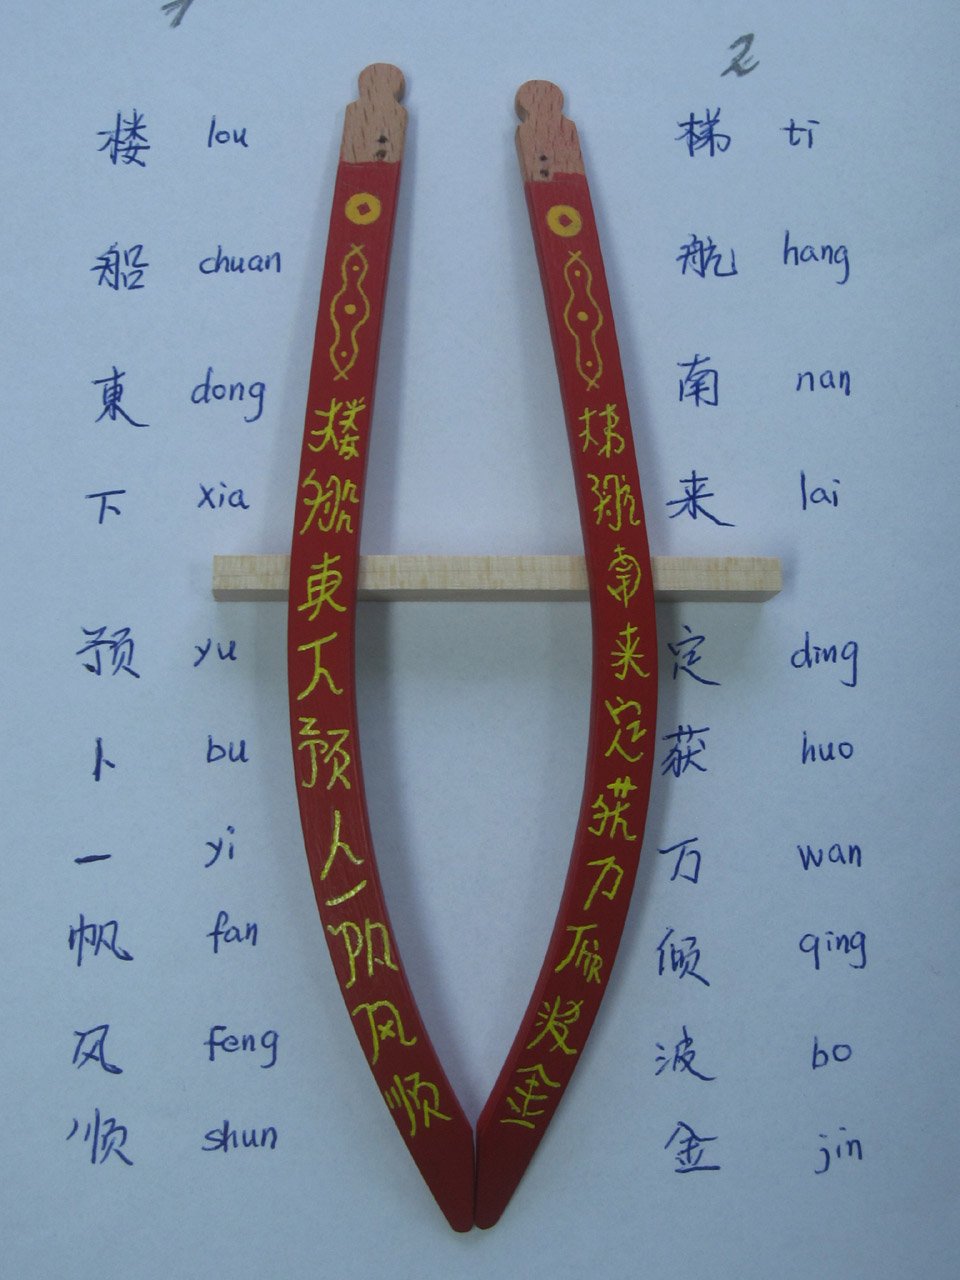 楼 lou
船 chuan
東 dong
下 xia
预 yu
卜 bu
一 yi
帆 fan
风 feng
顺 shun
楼船東下预卜一帆风顺
梯航南来定获万倾波金
2
梯 ti
航 hang
南 nan
来 lai
定 ding
获 huo
万 wan
倾 qing
波 bo
金 jin